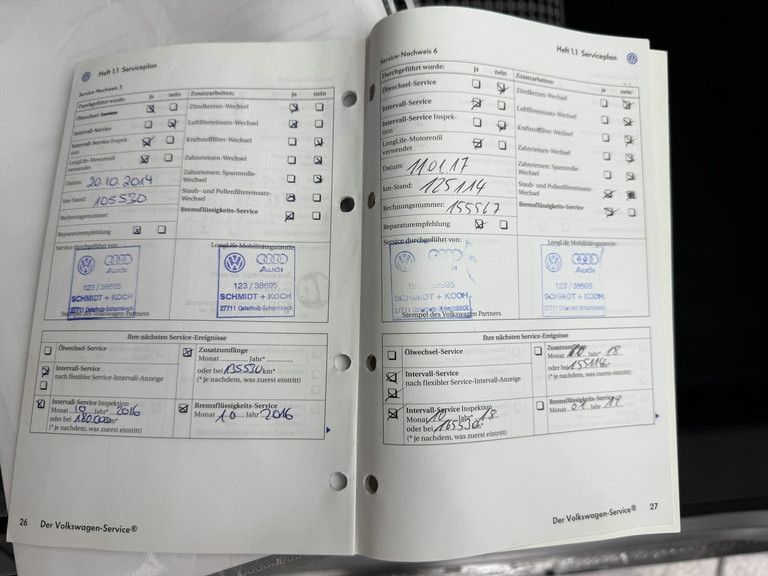 Heft 1.1 Serviceplan
Service-Nachweis 5
Durchgeführt wurde: ja nein
Ölwechsel-Service
Intervall-Service
Intervall-Service Inspek-
tion
LongLife-Motorenöl
verwendet
Datum: 20.10.2014
km-Stand: 105530
Rechnungsnummer:
Reparaturempfehlung
Zusatzarbeiten: ja nein
Zündkerzen-Wechsel
Luftfiltereinsatz-Wechsel
Kraftstofffilter-Wechsel
Zahnriemen-Wechsel
Zahnriemen: Spannrolle-
Wechsel
Staub- und Pollenfiltereinsatz-
Wechsel
Bremsflüssigkeits-Service
Service durchgeführt von:
Audi
123 / 38695
SCHMIDT + KOCH
27711 Osterholz-Scharmbeck
Stempel des Volkswagen Partners
LongLife Mobilitätsgarantie
Audi
123 / 38695
SCHMIDT + KOCH
27711 Osterholz-Scharmbeck
Ihre nächsten Service-Ereignisse
Ölwechsel-Service
Intervall-Service
nach flexibler Service-Intervall-Anzeige
Intervall-Service Inspektion
Monat 10 Jahr* 2016
oder bei km*
(* je nachdem, was zuerst eintritt)
Zusatzumfänge
Monat Jahr*
oder bei 135530 km*
(* je nachdem, was zuerst eintritt)
Bremsflüssigkeits-Service
Monat 10 Jahr 2016
26 Der Volkswagen-Service®
Heft 1.1 Serviceplan
Service-Nachweis 6
Durchgeführt wurde: ja nein
Ölwechsel-Service
Intervall-Service
Intervall-Service Inspek-
tion
LongLife-Motorenöl
verwendet
Datum: 11.01.17
km-Stand: 125114
Rechnungsnummer: 155567
Reparaturempfehlung
Zusatzarbeiten: ja nein
Zündkerzen-Wechsel
Luftfiltereinsatz-Wechsel
Kraftstofffilter-Wechsel
Zahnriemen-Wechsel
Zahnriemen: Spannrolle-
Wechsel
Staub- und Pollenfiltereinsatz-
Wechsel
Bremsflüssigkeits-Service
Service durchgeführt von:
Audi
123 / 38695
SCHMIDT + KOCH
27711 Osterholz-Scharmbeck
Stempel des Volkswagen Partners
LongLife Mobilitätsgarantie
Audi
123 / 38695
SCHMIDT + KOCH
27711 Osterholz-Scharmbeck
Ihre nächsten Service-Ereignisse
Ölwechsel-Service
Intervall-Service
nach flexibler Service-Intervall-Anzeige
Intervall-Service Inspektion
Monat 10 Jahr* 18
oder bei
(* je nachdem, was zuerst eintritt)
Zusatzumfänge
Jahr* 18
oder bei
(* je nachdem, was zuerst eintritt)
Bremsflüssigkeits-Service
Monat 01 Jahr 19
Der Volkswagen-Service® 27